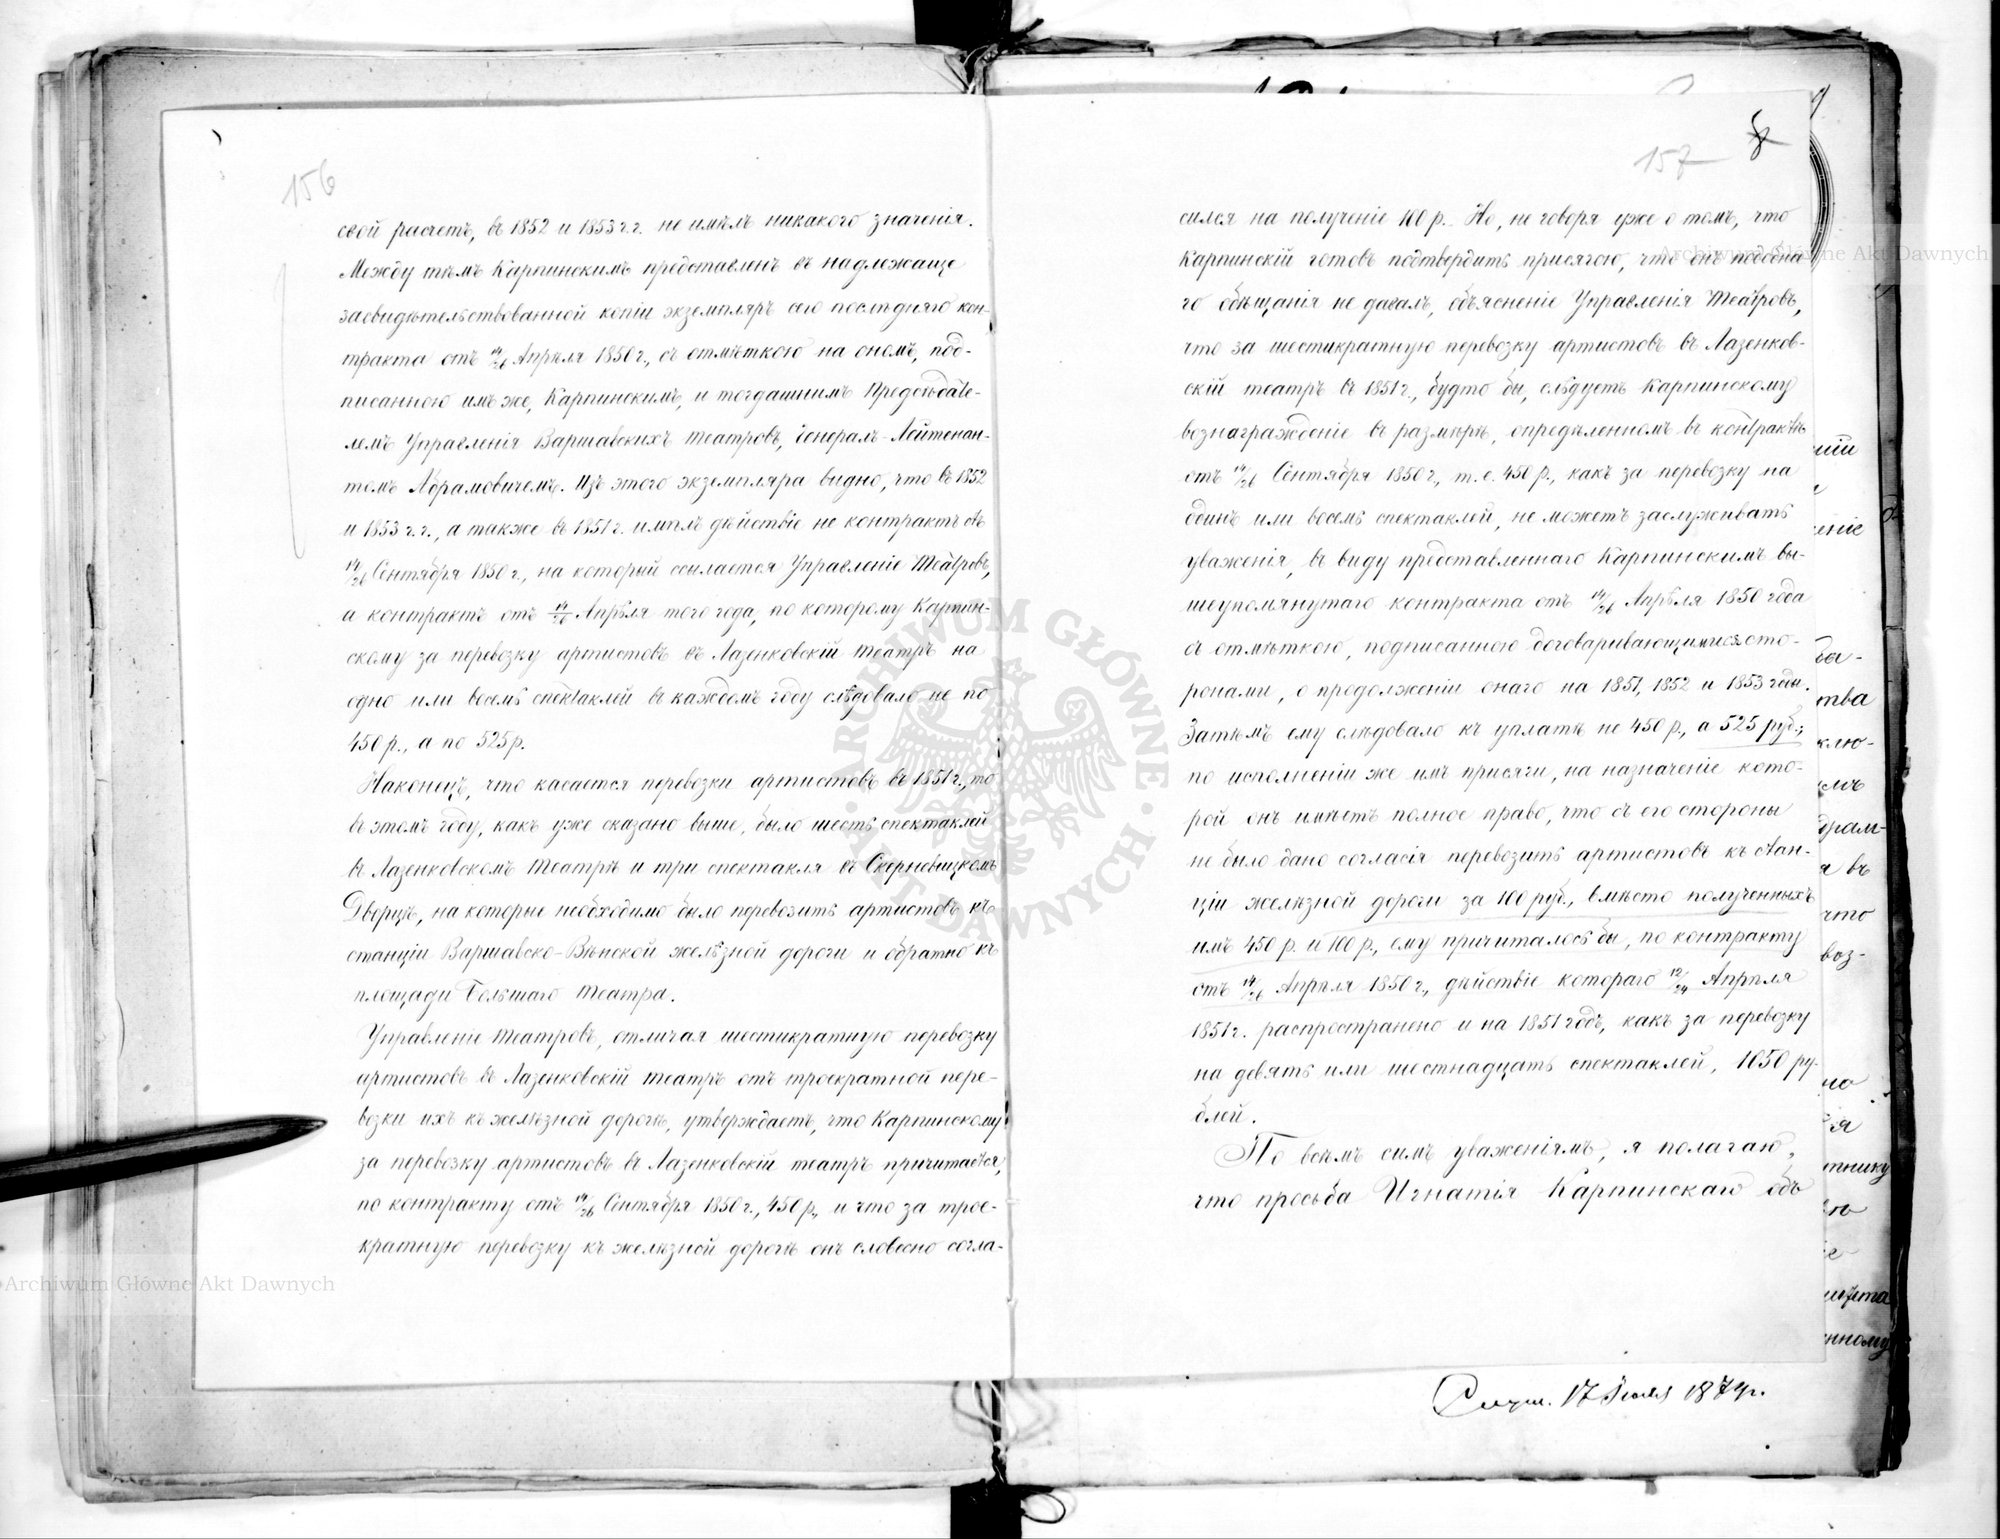 156
свой расчетъ, въ 1852 и 1853 г.г. не имѣлъ никакого значенія.
Между тѣмъ Карпинскимъ представленъ въ надлежаще
засвидѣтельствованной копіи экземпляръ сего послѣдняго кон-
тракта отъ 14/26 Апрѣля 1850 г., съ отмѣткою на ономъ, под-
писанною имъ же, Карпинскимъ, и тогдашнимъ Предсѣдате-
лемъ Управленія Варшавскихъ театровъ, Генералъ-Лейтенан-
томъ Абрамовичемъ. Изъ этого экземпляра видно, что въ 1852
и 1853 г.г., а также въ 1851 г. имѣлъ дѣйствіе не контрактъ отъ
14/26 Сентября 1850 г., на который ссылается Управленіе Театровъ,
а контрактъ отъ 14/26 Апрѣля того года, по которому Карпин-
скому за перевозку артистовъ въ Лазенковскій театръ на
одно или восемь спектаклей въ каждомъ году слѣдовало не по
450 р., а по 525 р.
Наконецъ, что касается перевозки артистовъ въ 1851 г., то
въ этомъ году, какъ уже сказано выше, было шесть спектаклей
въ Лазенковскомъ театрѣ и три спектакля въ Скерневицкомъ
Дворцѣ, на которые необходимо было перевозить артистовъ къ
станціи Варшавско-Вѣнской желѣзной дороги и обратно къ
площади Большаго театра.
Управленіе театровъ, отличая шестикратную перевозку
артистовъ въ Лазенковскій театръ отъ троекратной пере-
возки ихъ къ желѣзной дорогѣ, утверждаетъ, что Карпинскому
за перевозку артистовъ въ Лазенковскій театръ причитается,
по контракту отъ 14/26 Сентября 1850 г., 450 р., и что за трое-
кратную перевозку къ желѣзной дорогѣ онъ словесно согла-
157 8
сился на полученіе 100 р. Но, не говоря уже о томъ, что
Карпинскій готовъ подтвердить присягою, что онъ подобна-
го обѣщанія не давалъ, объясненіе Управленія Театровъ,
что за шестикратную перевозку артистовъ въ Лазенков-
скій театръ въ 1851 г., будто бы, слѣдуетъ Карпинскому
вознагражденіе въ размѣрѣ, опредѣленномъ въ контрактѣ
отъ 14/26 Сентября 1850 г., т. е. 450 р., какъ за перевозку на
одинъ или восемь спектаклей, не можетъ заслуживать
уваженія, въ виду представленнаго Карпинскимъ вы-
шеупомянутаго контракта отъ 14/26 Апрѣля 1850 года
съ отмѣткою, подписанною договаривающимися сто-
ронами, о продолженіи онаго на 1851, 1852 и 1853 годы.
Затѣмъ ему слѣдовало къ уплатѣ не 450 р., а 525 руб.;
по исполненіи же имъ присяги, на назначеніе кото-
рой онъ имѣетъ полное право, что съ его стороны
не было дано согласія перевозить артистовъ къ стан-
ціи желѣзной дороги за 100 руб., вмѣсто полученныхъ
имъ 450 р. и 100 р., ему причиталось бы, по контракту
отъ 14/26 Апрѣля 1850 г., дѣйствіе котораго 12/24 Апрѣля
1851 г. распространено и на 1851 годъ, какъ за перевозку
на девять или шестнадцать спектаклей, 1050 ру-
блей.
По всѣмъ симъ уваженіямъ, я полагаю,
что просьба Игнатія Карпинскаго объ
17 Іюля 187 г.
Archiwum Główne Akt Dawnych
Archiwum Główne Akt Dawnych
ARCHIWUM GŁÓWNE
AKT DAWNYCH